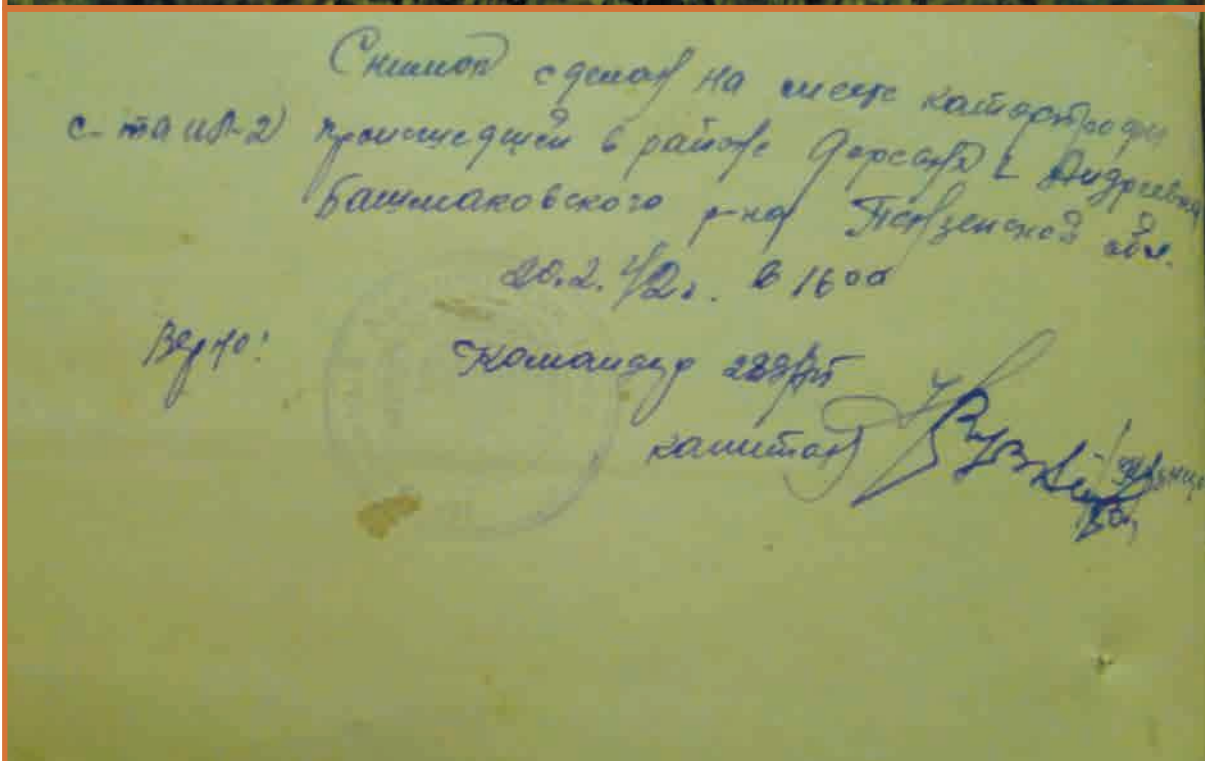 Снимок сделан на месте катастрофы
с-та ил-2 происшедшей в районе Андреевка
Башмаковского р-на Пензенской обл.
20.2.42г. в 16 00
Верно:
Командир
капитан